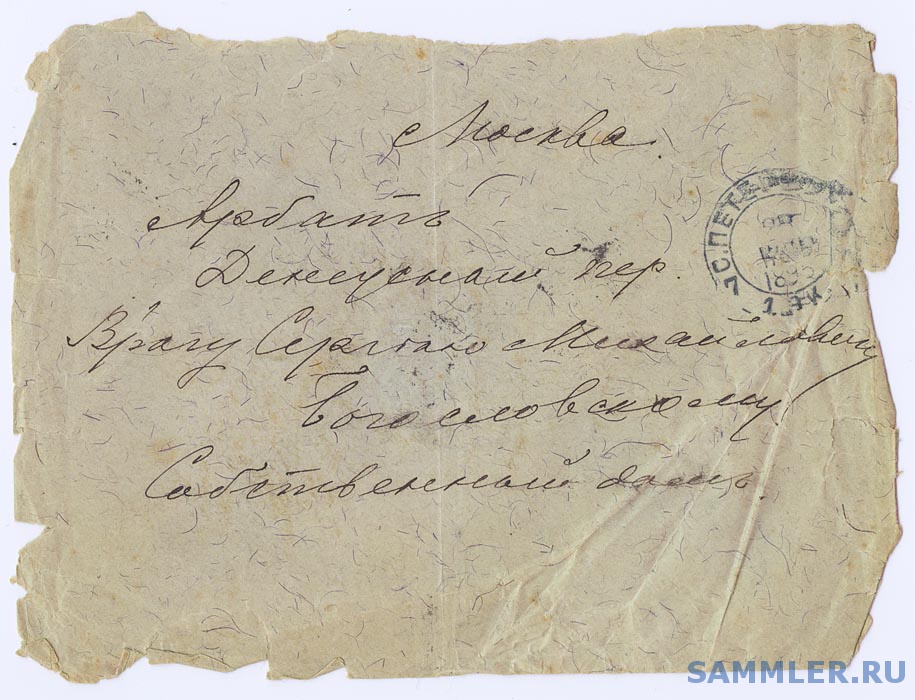 Москва.
Арбатъ
Денежный пер.
Врачу Сергѣю Михайловичу
Богословскому
Собственный домъ.
С.ПЕТЕ
SAMMLER.RU